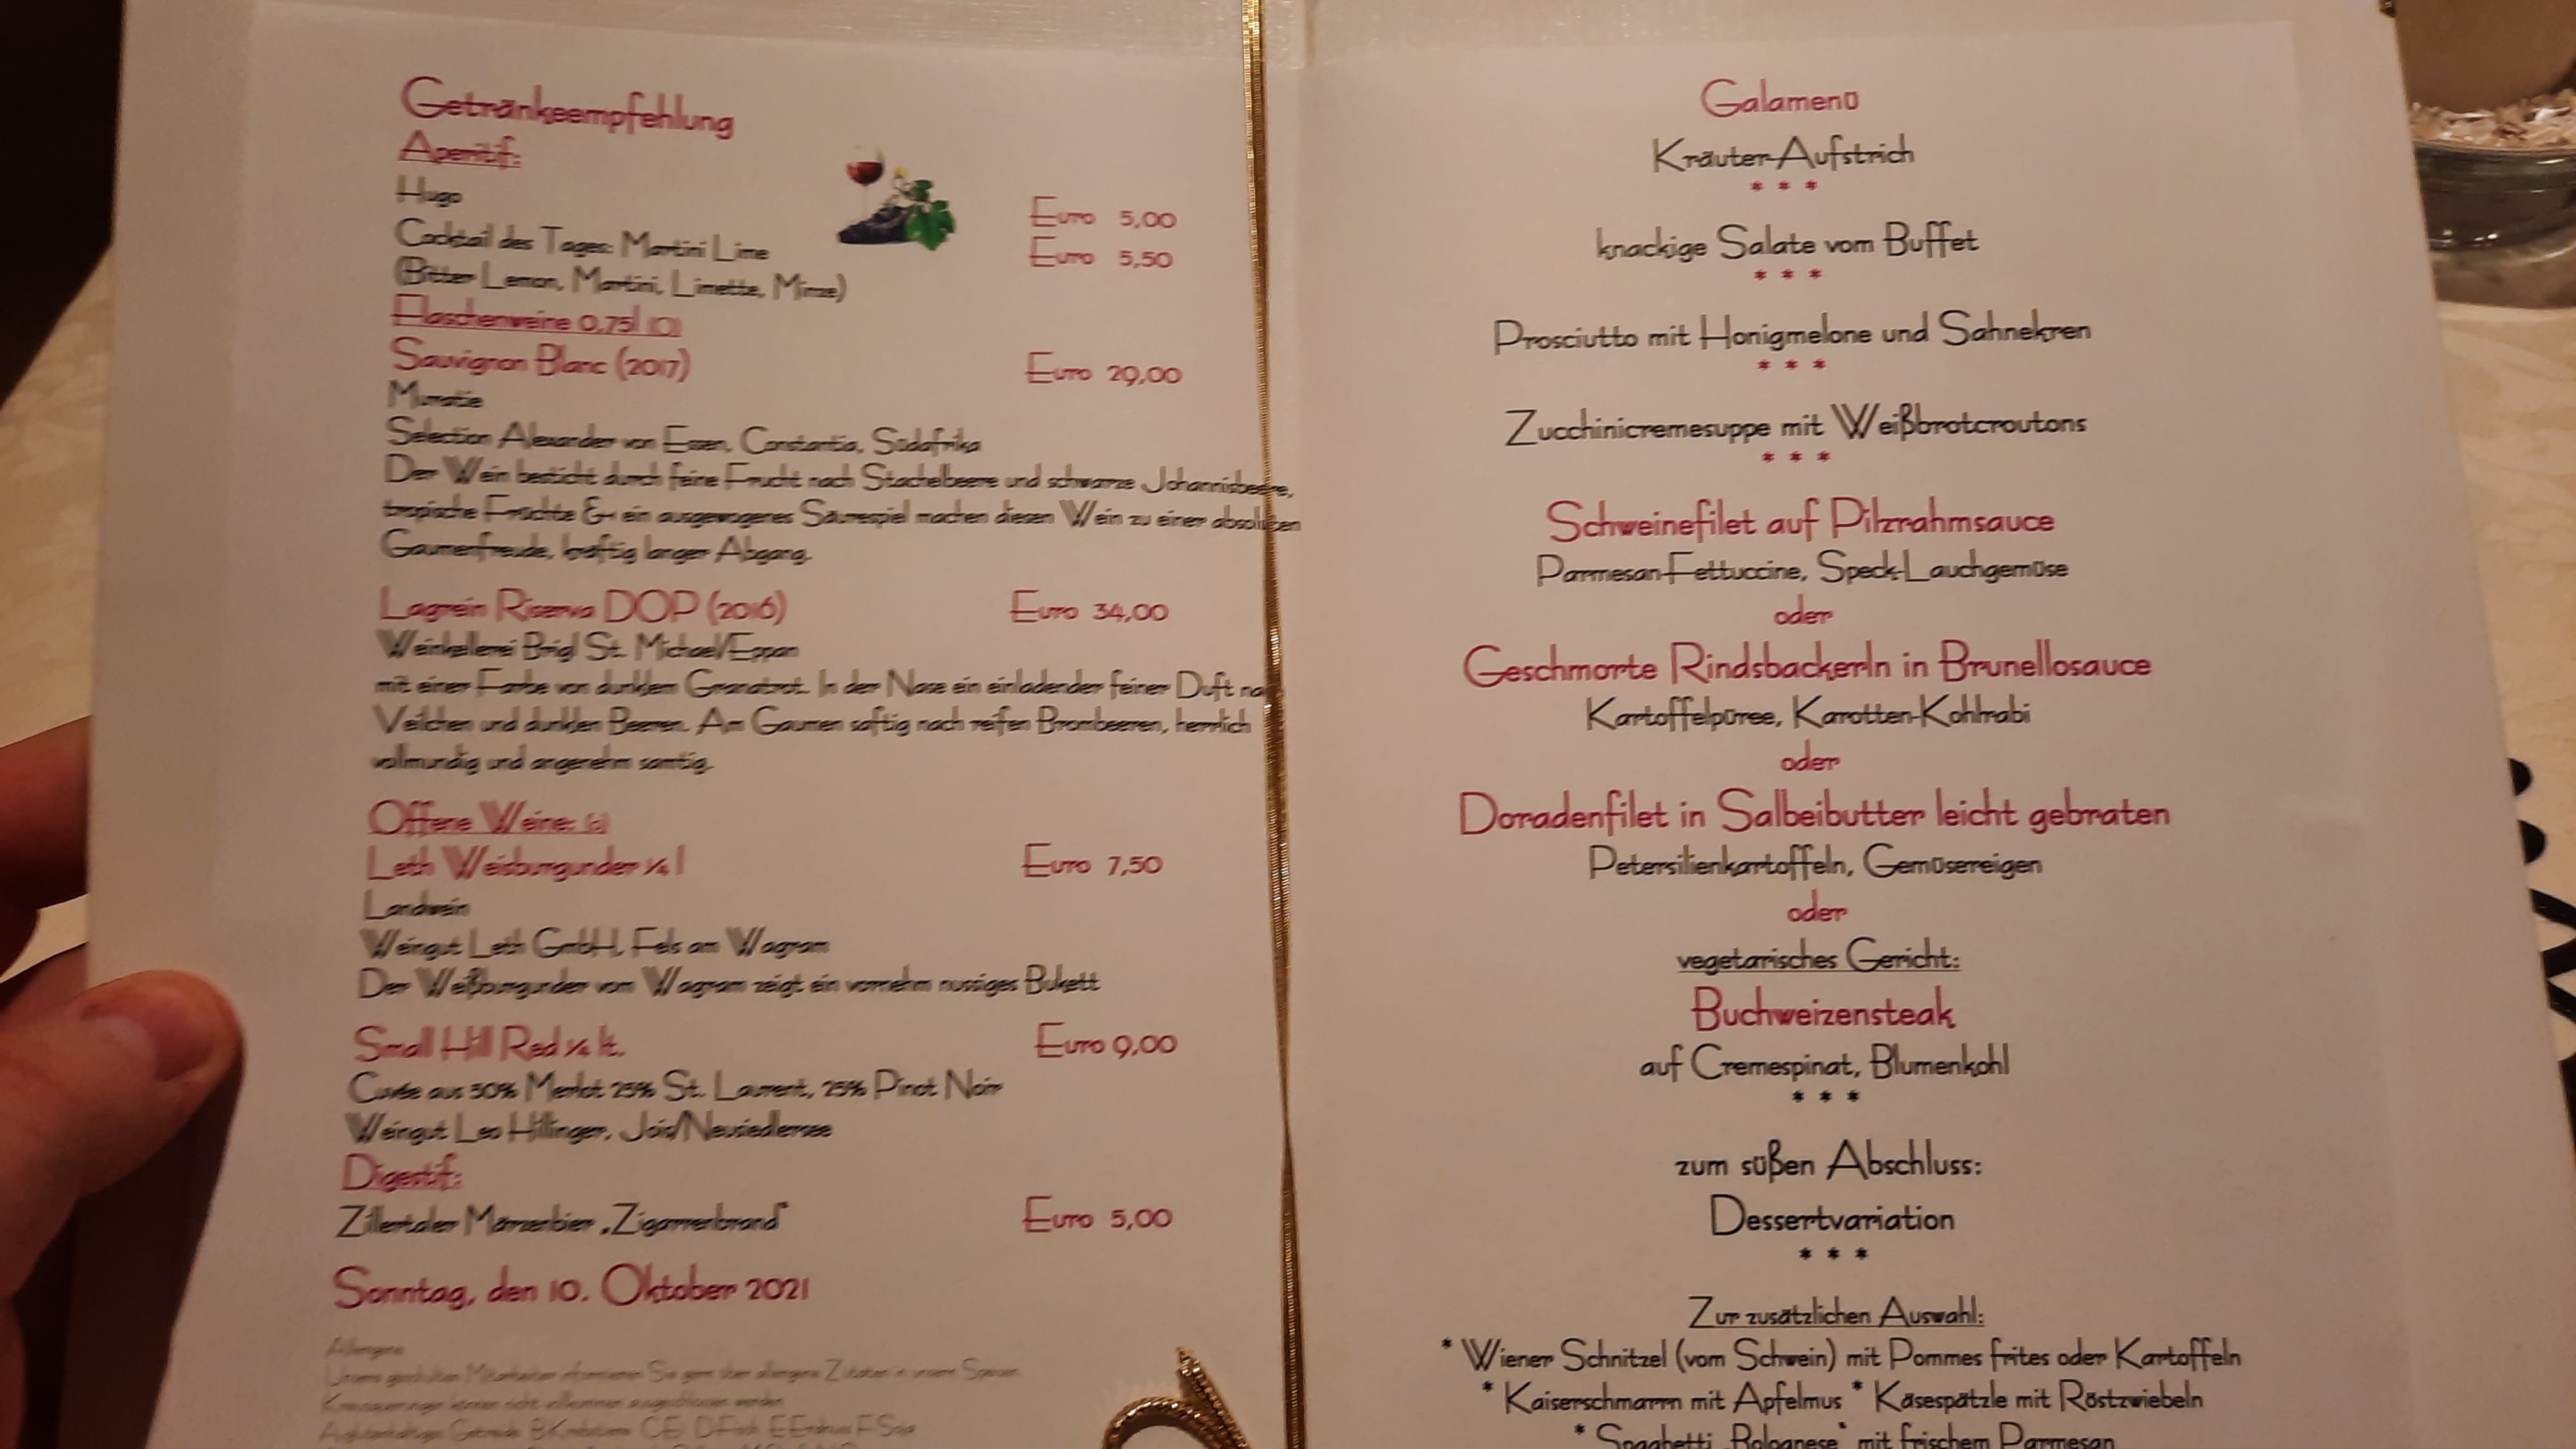 Getränkeempfehlung
Aperitif:
Hugo Euro 5,00
Cocktail des Tages: Martini Lime Euro 5,50
(Bitter Lemon, Martini, Limette, Minze)
Flaschenweine 0,75l (O)
Sauvignon Blanc (2017) Euro 29,00
Muratie
Selection Alexander von Essen, Constantia, Südafrika
Der Wein besticht durch feine Frucht nach Stachelbeere und schwarze Johannisbeere,
tropische Früchte & ein ausgewogenes Säurespiel machen diesen Wein zu einer absoluten
Gaumenfreude, kräftig langer Abgang.
Lagrein Riserva DOP (2016) Euro 34,00
Weinkellerei Brigl St. Michael/Eppan
mit einer Farbe von dunklem Granatrot. In der Nase ein einladender feiner Duft na
Veilchen und dunklen Beeren. Am Gaumen saftig nach reifen Brombeeren, herrlich
vollmundig und angenehm samtig.
Offene Weine:
Leth Weisburgunder ¼ l Euro 7,50
Landwein
Weingut Leth GmbH, Fels am Wagram
Der Weißburgunder vom Wagram zeigt ein vornehm nussiges Bukett
Small Hill Red ¼ lt. Euro 9,00
Cuvée aus 50% Merlot 25% St. Laurent, 25% Pinot Noir
Weingut Leo Hillinger, Jois/Neusiedlersee
Digestif:
Zillertaler Märzenbier „Zigarrenbrand“ Euro 5,00
Sonntag, den 10. Oktober 2021
Allergene
Unsere geschulten Mitarbeiter informieren Sie gern über allergene Zutaten in unseren Speisen.
Kreuzungen können nicht vollkommen ausgeschlossen werden
A glutenhaltiges Getreide B Krebstiere C Ei D Fisch E Erdnuss F Soja
Galamenü
Kräuter-Aufstrich
* * *
knackige Salate vom Buffet
* * *
Prosciutto mit Honigmelone und Sahnekren
* * *
Zucchinicremesuppe mit Weißbrotcroutons
* * *
Schweinefilet auf Pilzrahmsauce
Parmesan-Fettuccine, Speck-Lauchgemüse
oder
Geschmorte Rindsbackerln in Brunellosauce
Kartoffelpüree, Karotten-Kohlrabi
oder
Doradenfilet in Salbeibutter leicht gebraten
Petersilienkartoffeln, Gemüsereigen
oder
vegetarisches Gericht:
Buchweizensteak
auf Cremespinat, Blumenkohl
* * *
zum süßen Abschluss:
Dessertvariation
* * *
Zur zusätzlichen Auswahl:
* Wiener Schnitzel (vom Schwein) mit Pommes frites oder Kartoffeln
* Kaiserschmarrn mit Apfelmus * Käsespätzle mit Röstzwiebeln
* Spaghetti „Bolognese“ mit frischem Parmesan